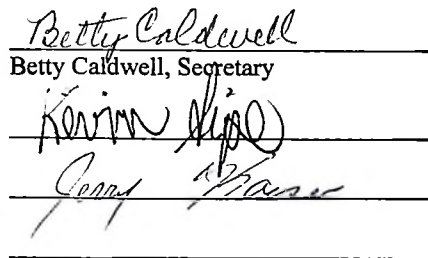 Betty Caldwell
Betty Caldwell, Secretary
Kevin Sipe
Jerry